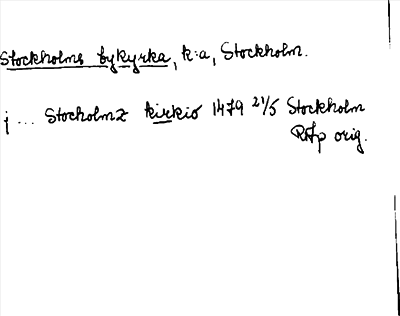 Stockholms bykyrka, k:a, Stockholm.
j ... Stocholmz kirkio 1479 21/5 Stockholm
RAp orig.